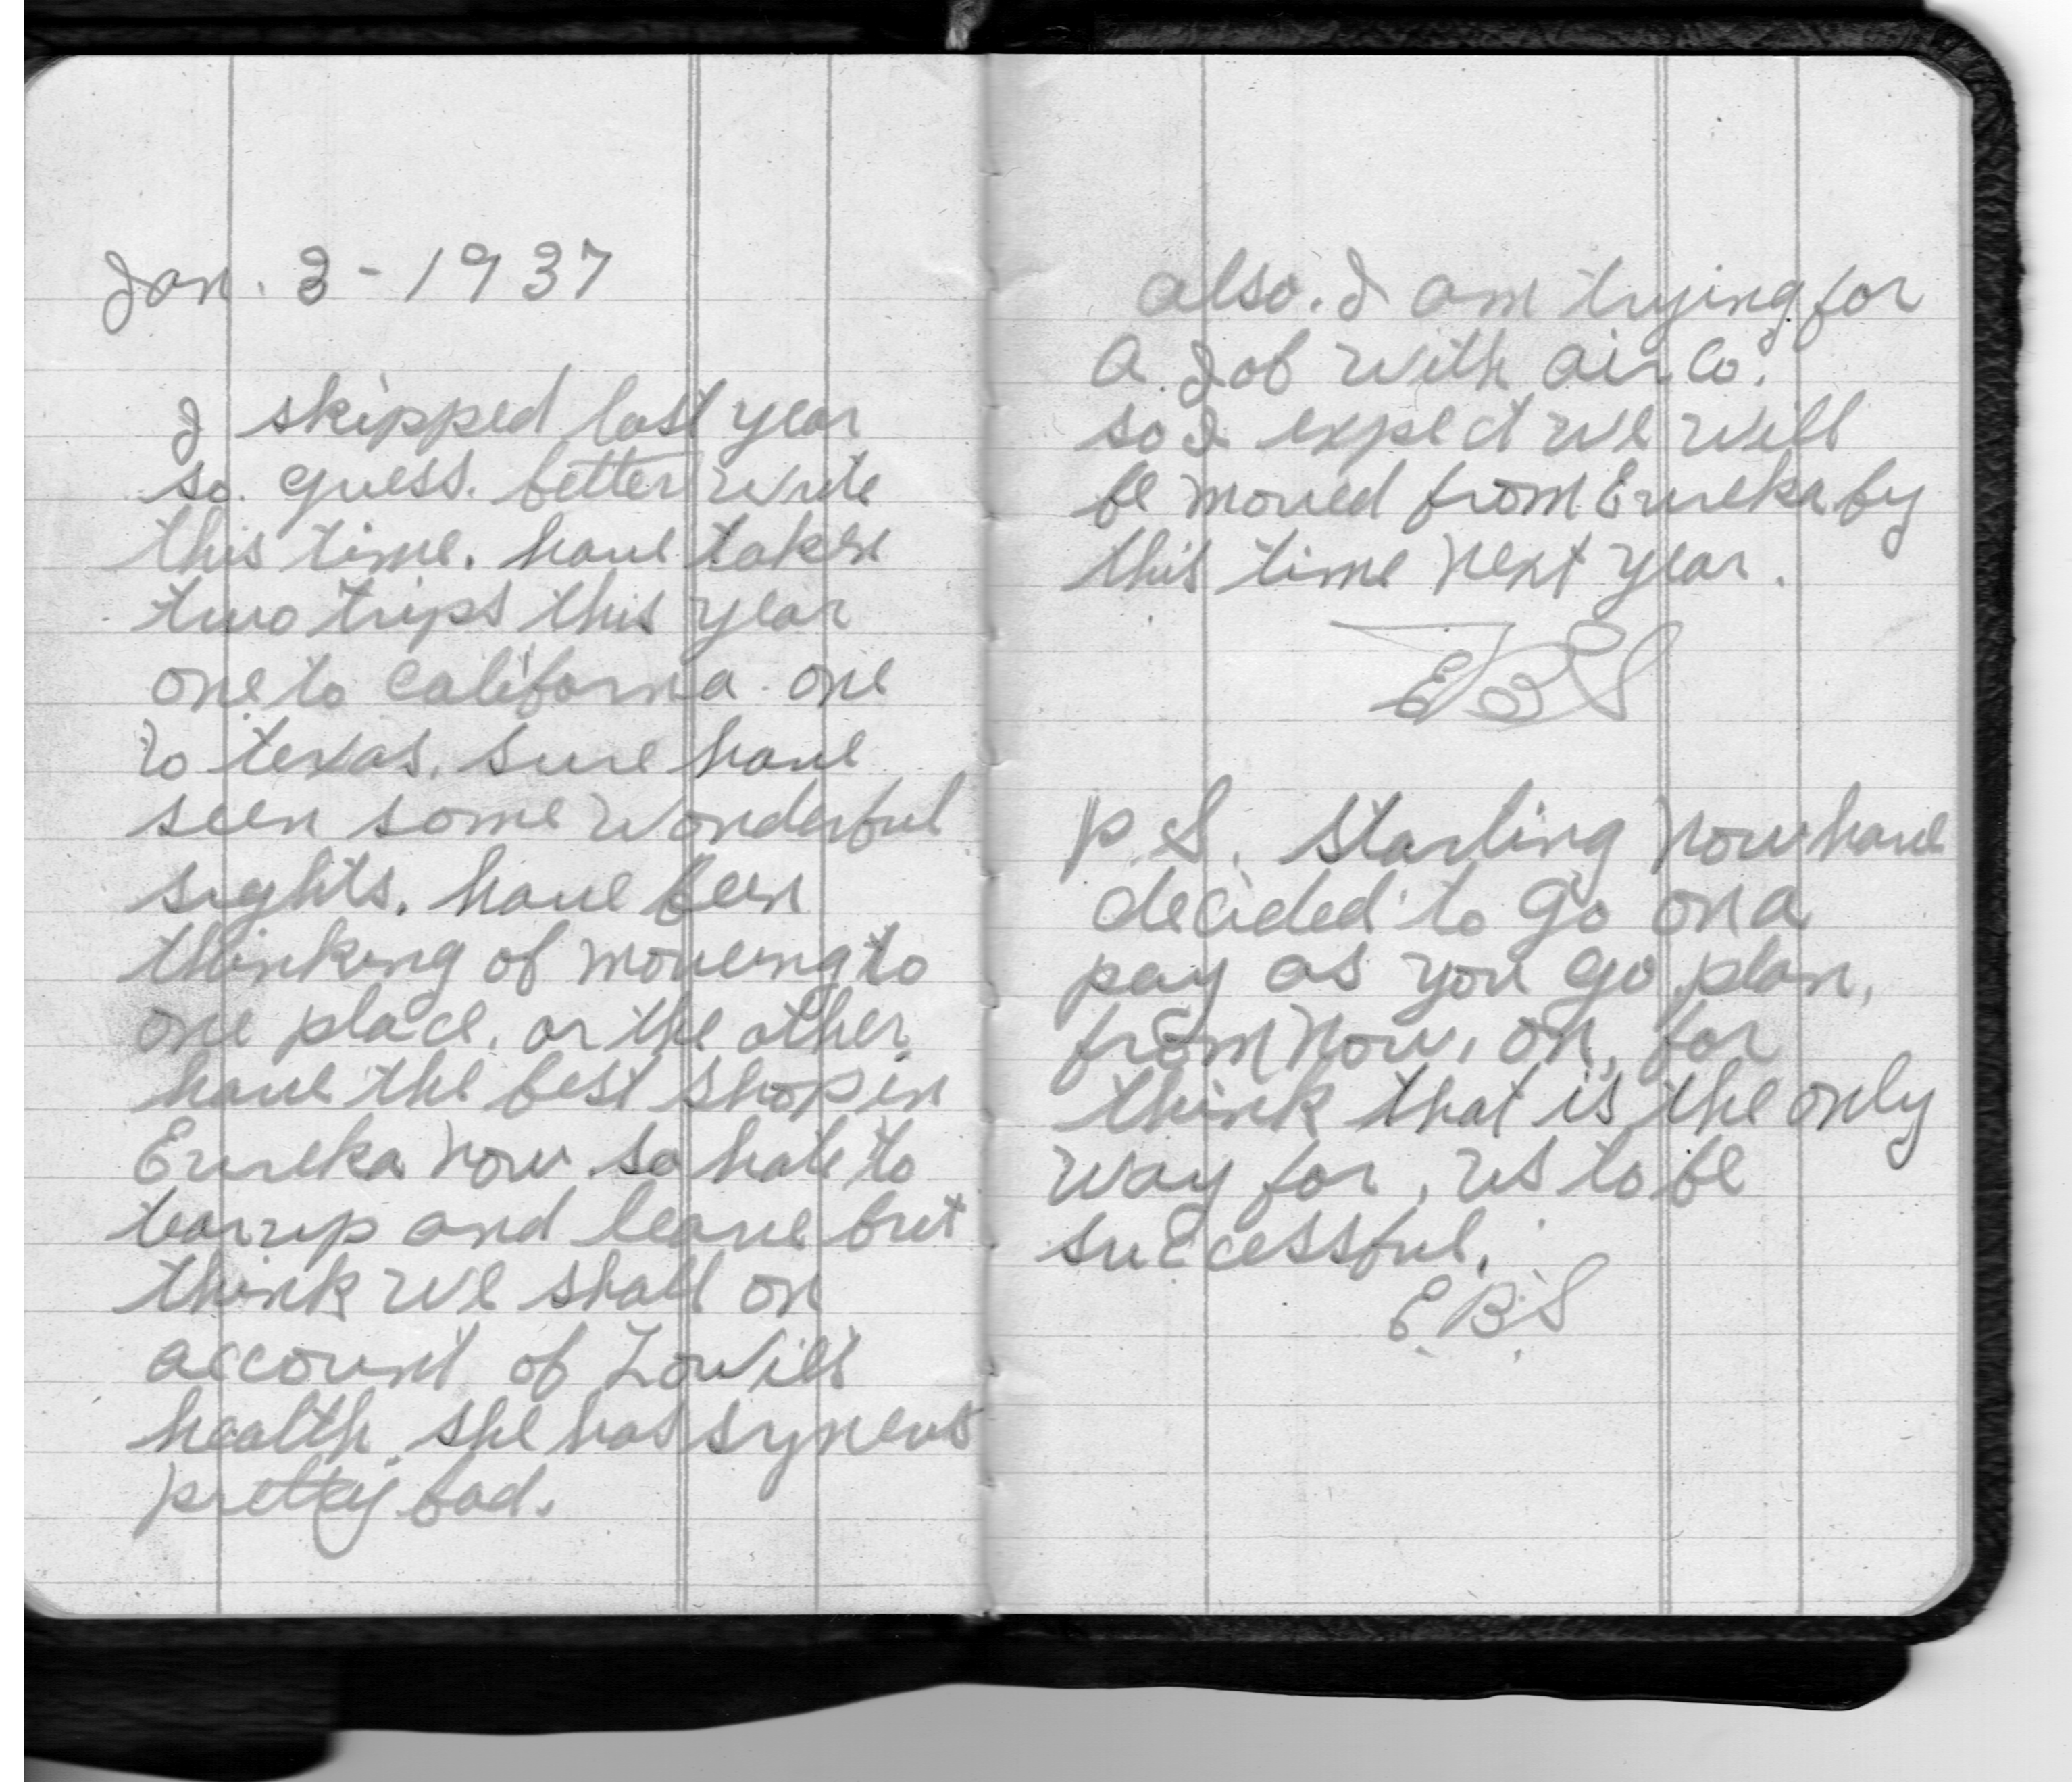 Jan. 3 - 1937
I skipped last year
so. guess. better write
this time. have taken
two trips this year
one to California one
to texas. sure have
seen some wonderful
sights. have been
thinking of moveing to
one place. or the other.
have the best shop in
Eureka now so hate to
tear up and leave but
think we shall on
account of
health she has synews
pretty bad.
also. I am trying for
a Job with air Co.
so I expect we will
be moved from Eureka by
this time next year.
EBS
P.S. Starting now have
decided to go on a
pay as you go plan,
from now, on, for
think that is the only
way for, us to be
successful.
E.B.S